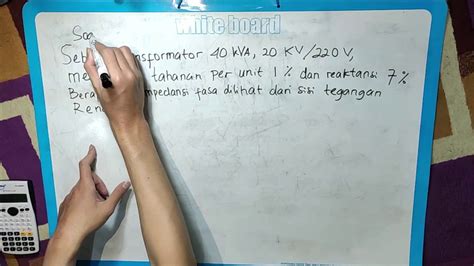 white board
Soa
Seb nsformator 40 KVA, 20 KV/220 V,
me tahanan per unit 1% dan reaktansi 7%
Bera mpedansi fasa dilihat dari sisi tegangan
Ren